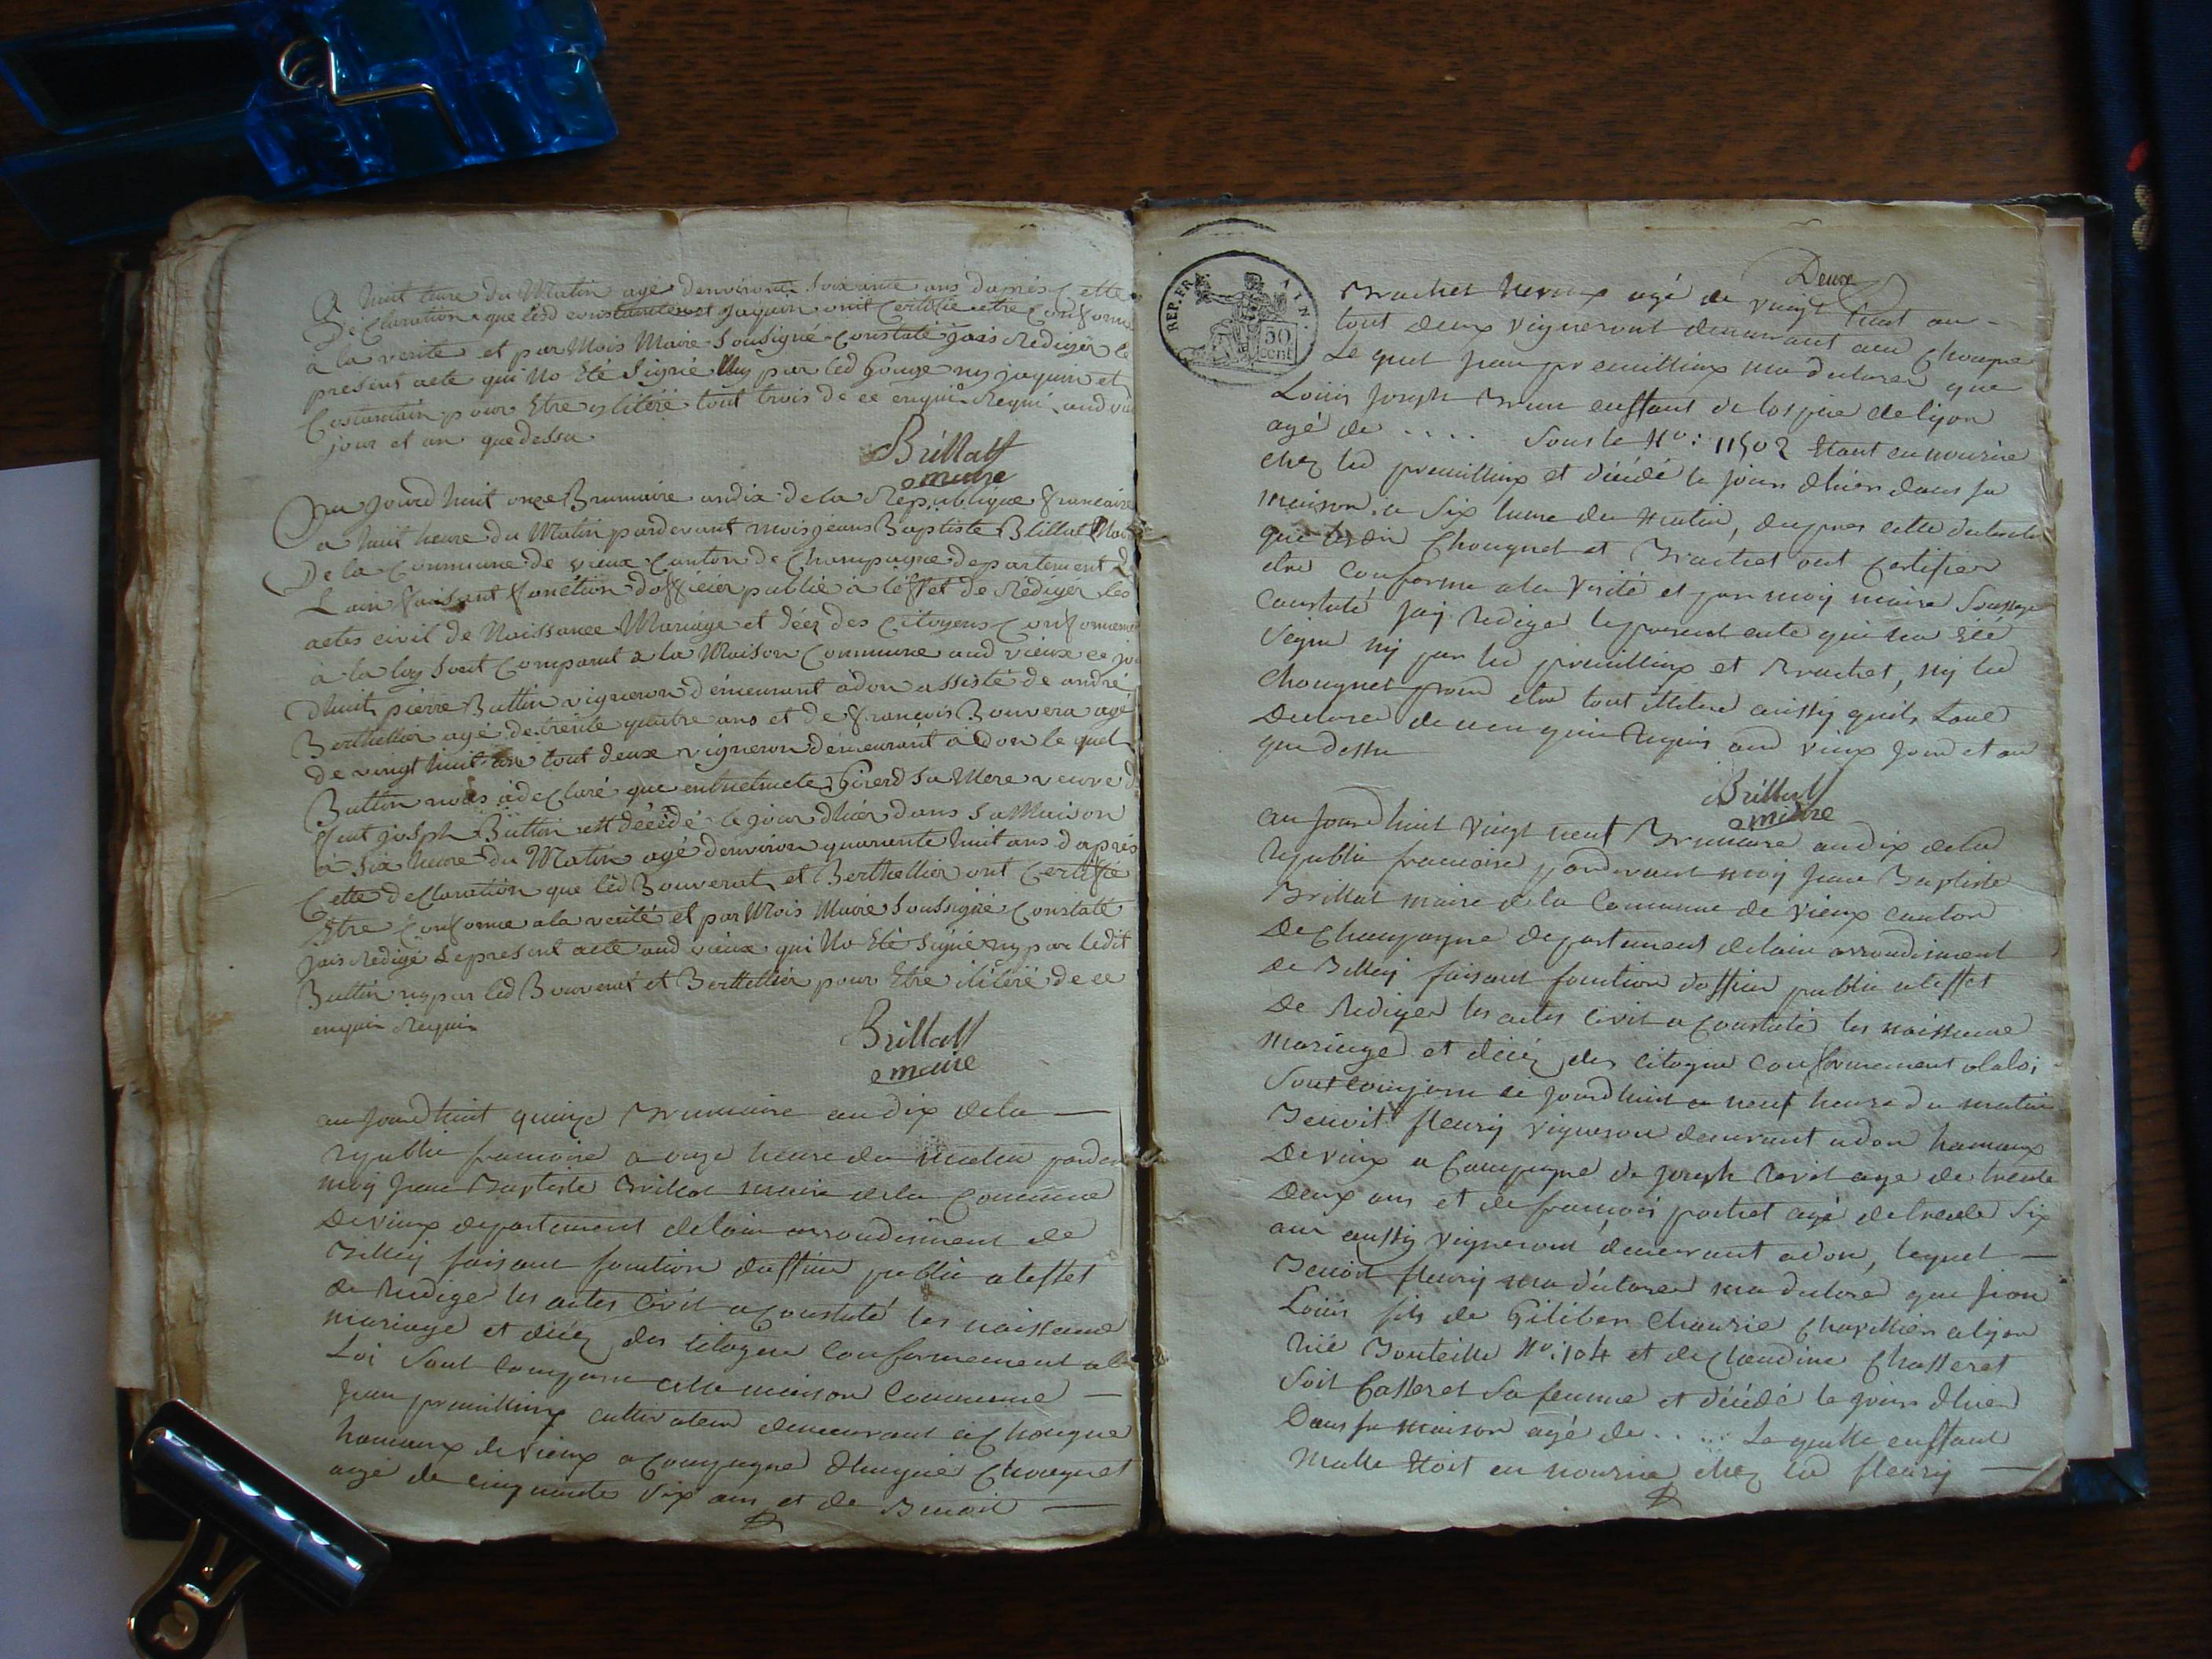 a huit heure du Matin agé denviront soixante ans dapres Cette
Déclaration que lesd constantin et Jaquin ont Certifie etre Conforme
à la verité et par Mois Maire Sousigné Constaté jais Rédigér le
present acte qui No Eté Signé Ny par led Gouge ny jaquin et
Costantin pour Etre ilitéré tout trois de ce enquis Requi aud vieux
jour et an que dessu
Brillatt
maire
Au Jourd huit onze Brumaire andix de la République francaise
a huit heure du Matin pardevant mois jeans Baptiste Blillat Mai
De la Commune de vieux Canton de Champagne departement De
Lain faisant fonction dofficier publié à leffet de Rédigér les
actes civil de Naissance Mariage et déez des Citoyens Conformeme
à la loy Sont Comparut a la Maison Commune aud vieux ce jo
dhuit pierre Buttin vigneron démeurant adon assisté de andré
Berthellier agé de trente quatre ans et de françois Bouvera agé
de vingt huit ans tout deux vigneron démeurant a don le quel
Buttin nous à déclaré que Girerd Sa Mere veuve d
feut joseph Buttin est décédé le jour dhier dans sa Maison
à six heure du Matin agé denviron quarente huit ans dapres
Cette déclaration que led Bouverat et Berthellier ont Certifié
Etre Conforme ala verité et par Mois Maire Soussigné Constaté
jais Rédigé Le present acte aud vieux qui No Eté Signé ny par ledit
Buttin ny par led Bouverat et Berthellier pour Etre iliteré de ce
enquis Requis
Brillatt
maire
au Jourd huit quinze Brumaire an dix dela
republie francoise a onze heure du matin pardev
moy Jean Baptiste Brillat maire dela Commune
De vieux departement delain arrondisment de
Billey faisant fonction dofficier public a leffet
de Rediger les actes Civil a Constaté les naissance
mariage et décéz des Citoyen Conformement a la
Loi Sont Comparu ala maison Commune
Jean premillieux cultivateur demeurant a Chougne
hameaux de vieux a Compagne dhugue Chougnet
agé de cinquante Six ans et de Benoit
REP. FRA. 50 cent
Deux
Brachet agé de vingt huit an
tout deux vigneront demeurant aud Chougne
Le quel Jean premillieux ma declarer que
Louis Joseph Brun enffant de lospice de lyon
agé de .... Sous le No: 11502 Etant en nourice
chez led premillieux et décédé le jour dhier dans sa
maison a Six heure du matin, dapres cette declaration
que lesdi Chougnet et Brachet ont Certifier
etre Conforme ala verité et par moy maire Soussigne
Constaté Jay Rediger le present acte qui na Eté
Signe ny par led premillieux et Brachet, ny led
Chougnet pour etre tout illitere aussy quils Lont
Declarer de ce enquis Requis aud vieux Jour et an
que dessu
Brillatt
maire
au Jourd huit vingt neuf Brumaire an dix dela
Republi francoise pardevant moy Jean Baptiste
Brillat maire de la Commune de vieux canton
De Champagne departement delain arrondisment
de Billey faisant fonction dofficier public a leffet
De Rediger les actes Civil a Constaté les naissance
mariage et décéz des Citoyen Conformement alaloi
Sont Comparu ce Jourd huit a neuf heure du matin
Benoit fleury vigneron demurant a don hameaux
De vieux a Compagne de Joseph agé de trente
Deux ans et de françois pochet agé de trente Six
ans aussy vigneront demeurant a don, lequel
Benoit fleury ma déclarer ma declare que Jean
Louis fils de Giliber Chaurie Chapellier a lyon
rüe Bouteille No: 104 et de Claudine Chasseret
Soit Casseret Sa femme et décédé le jour dhier
Dans sa maison agé de ..... Le quelle enffant
malle Etoit en nourice chez led fleury